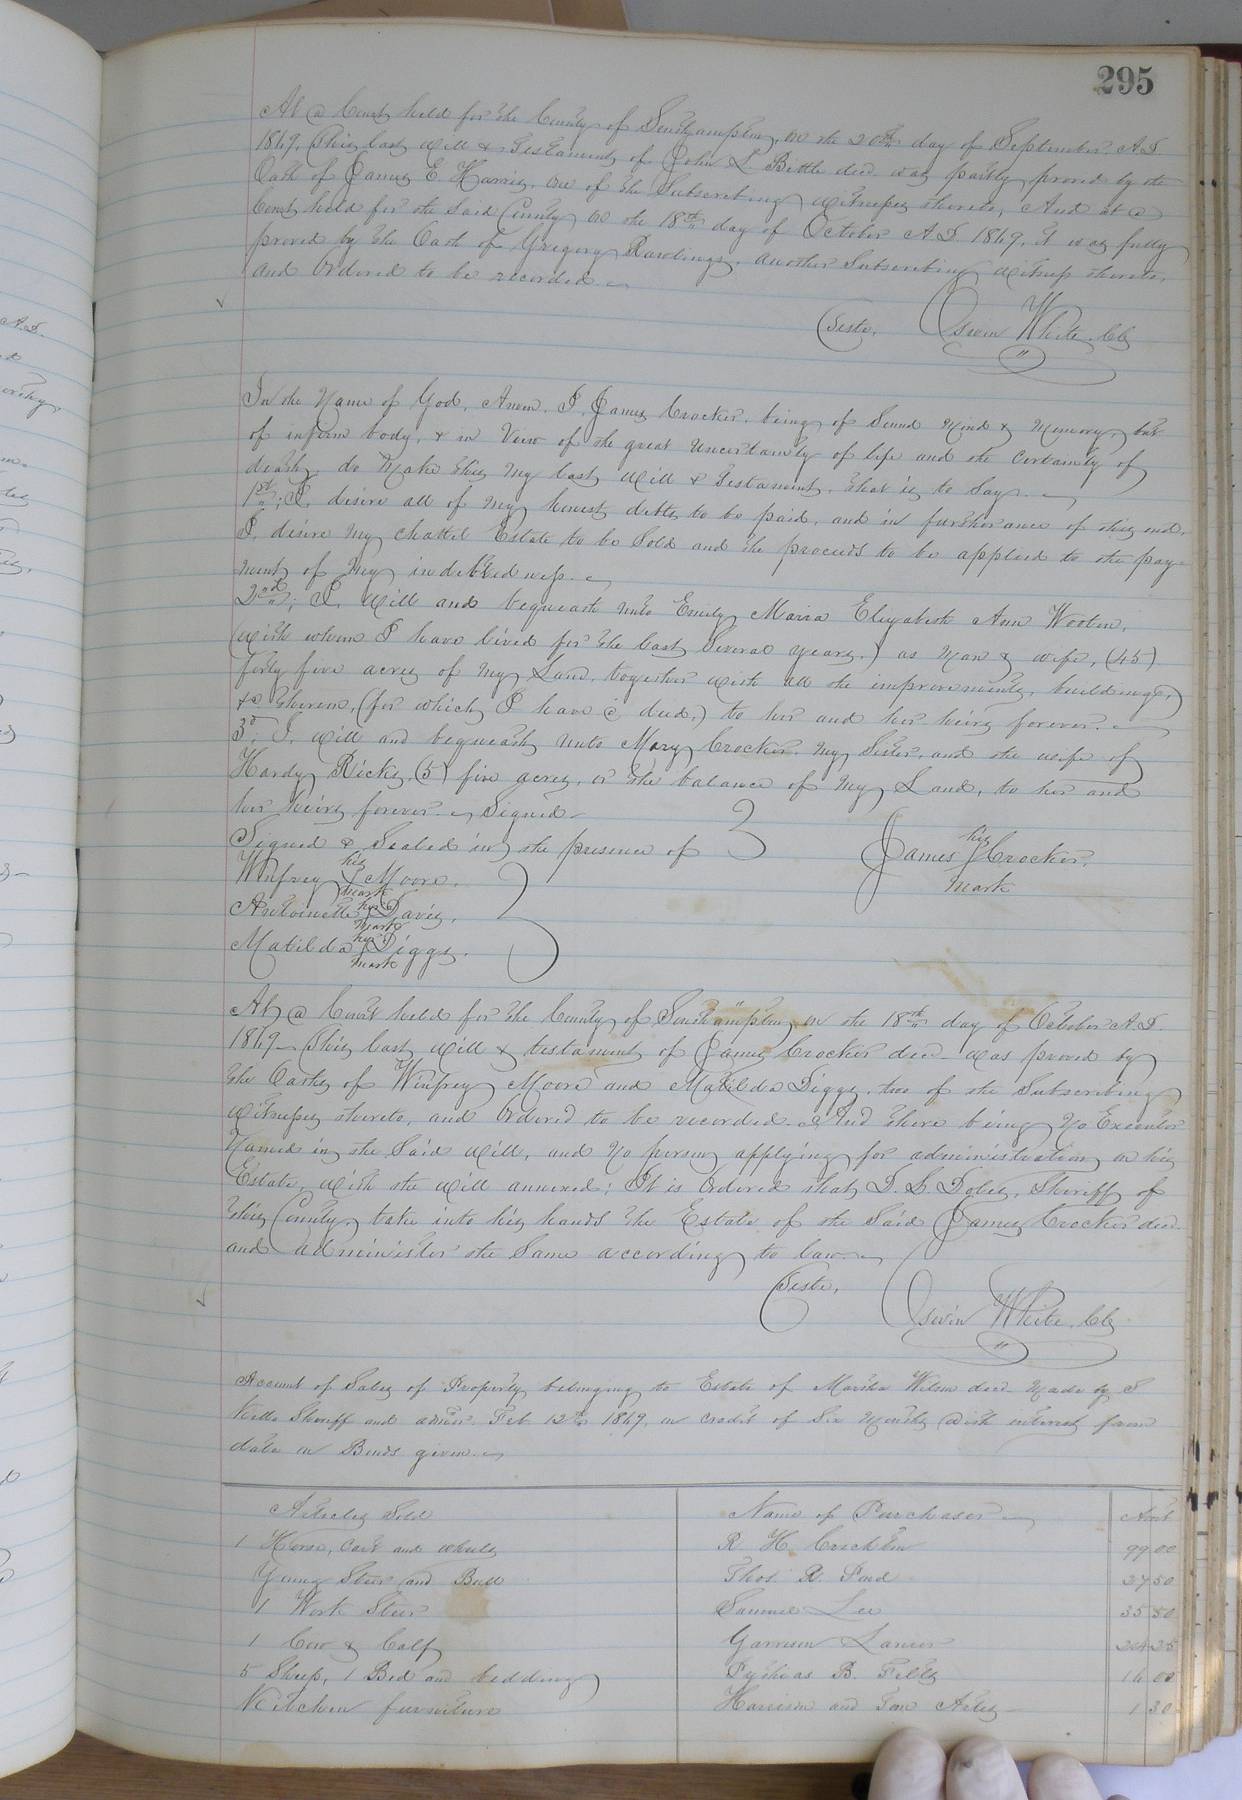 295
At a Court held for the County of Southampton, on the 20th day of September A.D.
1869, This last Will & Testament of John L Battle decd was partly proved by the
Oath of James E. Harris, one of the Subscribing witnesses thereto, And at a
Court held for the said County on the 18th day of October A.D. 1869, it was fully
proved by the Oath of Gregory Rawlings, another Subscribing witness thereto,
and Ordered to be recorded.
Teste, Oswin White, Clk
In the Name of God, Amen. I, James Crocker, being of Sound Mind & Memory, but
of infirm body, & in View of the great Uncertainty of life and the Certainty of
death, do Make this My last Will & Testament, that is to Say.
1st; I, desire all of My honest debts to be paid, and in furtherance of this end,
I, desire My chattel Estate to be Sold and the proceeds to be applied to the pay-
ment of My indebtedness.
2nd; I, Will and bequeath unto Emily Maria Elizabeth Ann Wooten,
(with whom I have lived for the last Several years,) as Man & wife, (45)
forty five acres of My Land, together with all the improvements, buildings,
&c thereon, (for which I have a deed,) to her and her heirs forever.
3d, I, Will and bequeath unto Mary Crocker, My Sister, and the wife of
Hardy Ricks, (5) five acres, or the balance of My Land, to her and
her heirs forever. Signed
Signed & Sealed in the presence of
James his Crocker.
mark
Winfrey his Moore.
mark
Antoinette her Davis.
mark
Matilda her Diggs.
mark
At a Court held for the County of Southampton, on the 18th day of October A.D.
1869 This last Will & testament of James Crocker decd was proved by
the Oaths of Winfrey Moore and Matilda Diggs, two of the Subscribing
witnesses thereto, and Ordered to be recorded. And there being No Executor
Named in the Said Will, and No person applying for administration on his
Estate, with the Will annexed; It is Ordered that D. L. Dobey, Sheriff of
this County, take into his hands the Estate of the Said James Crocker decd
and administer the Same according to law.
Teste,
Oswin White, Clk
Account of Sales of Property belonging to Estate of Martha Wilson decd made by S
Kello Sheriff and admr. Feb 12th 1869, on credit of Six Months with interest from
date on Bonds given.
Articles Sold Name of Purchaser Amt
1 Horse, Cart and wheels R H 99 00
Young Steer and Bull Thos. R. 27 50
1 Work Steer Samuel Lee 35 50
1 Cow & Calf Garrison Lanier 25
5 Sheep, 1 Bed and bedding B. 16 00
Kitchen furniture Harrison and 1 30